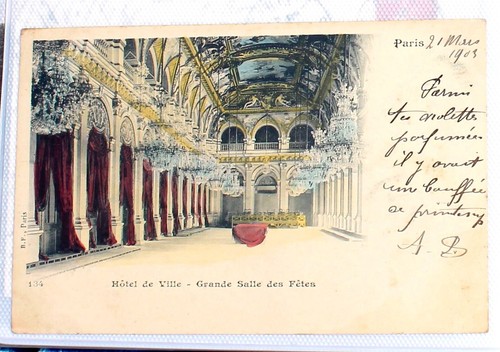 Paris 21 Mars
1903
Parmi
tes violettes
parfumées
il y avait
une bouffée
de printemps
A. B
B.F., Paris
134 Hôtel de Ville - Grande Salle des Fêtes